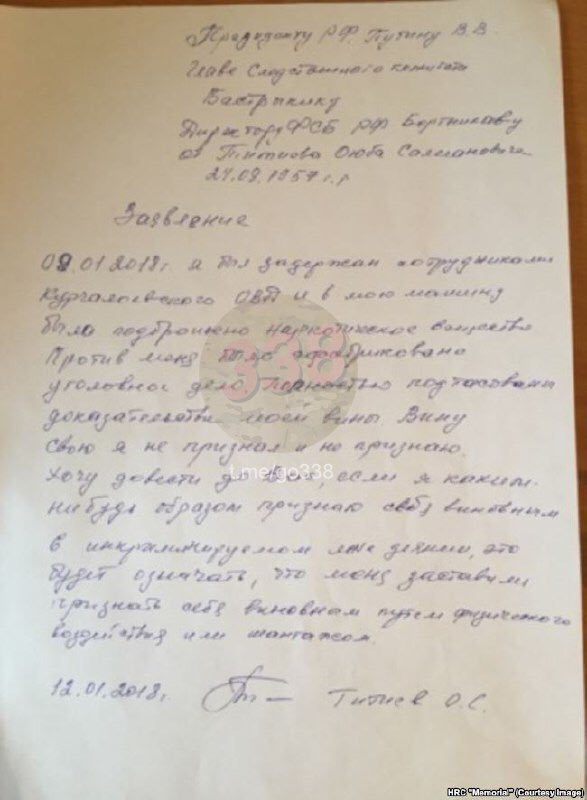 Президенту РФ Путину В.В.
Главе Следственного комитета
Бастрыкину
Директору ФСБ РФ Бортникову
от Титиева Оюба Салмановича
24.08.1957 г.р
Заявление
09.01.2018г я был задержан сотрудниками
Курчалоевского ОВД и в мою машину
было подброшено наркотическое вещество
Против меня было сфабриковано
уголовное дело Полностью подтасованы
доказательства моей вины Вину
свою я не признал и не признаю
Хочу довести до Вас, если я каким-
нибудь образом признаю себя виновным
в инкриминируемом мне деянии, это
будет означать, что меня заставили
признать себя виновным путем физического
воздействия или шантажом.
12.01.2018г. Титиев О.С.
338
t.me/go338
HRC "Memorial" (Courtesy Image)